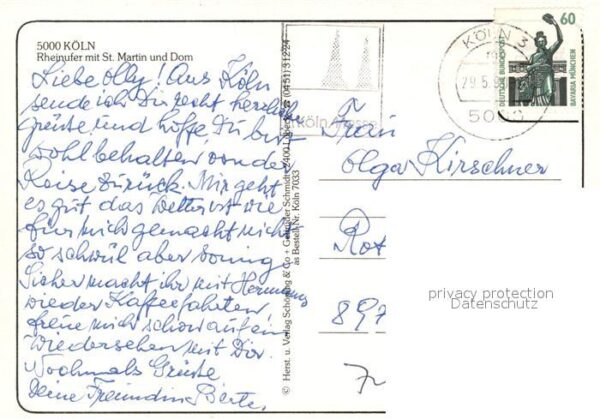 5000 KÖLN
Rheinufer mit St. Martin und Dom
Liebe Olly! Aus Köln
sende ich Dir recht herzliche
Grüße und hoffe, Du bist
wohlbehalten von der
Reise zurück. Mir geht
es gut das Wetter ist wie
für mich gemacht nicht
so schwül aber sonnig
Sicher macht ihr mit Hermann
wieder Kaffeefahrten,
freue mich schon auf ein
Wiedersehen mit Dir.
Nochmals Grüße
Deine Freundin Berte,
© Herst. u. Verlag Schöning & Co + Gebrüder Schmidt
Bestell-Nr. Köln 7033
köln
KÖLN 3
29.5.
60
DEUTSCHE BUNDESPOST
BAVARIA MÜNCHEN
Frau
Olga Kirschner
Rot
897
privacy protection
Datenschutz